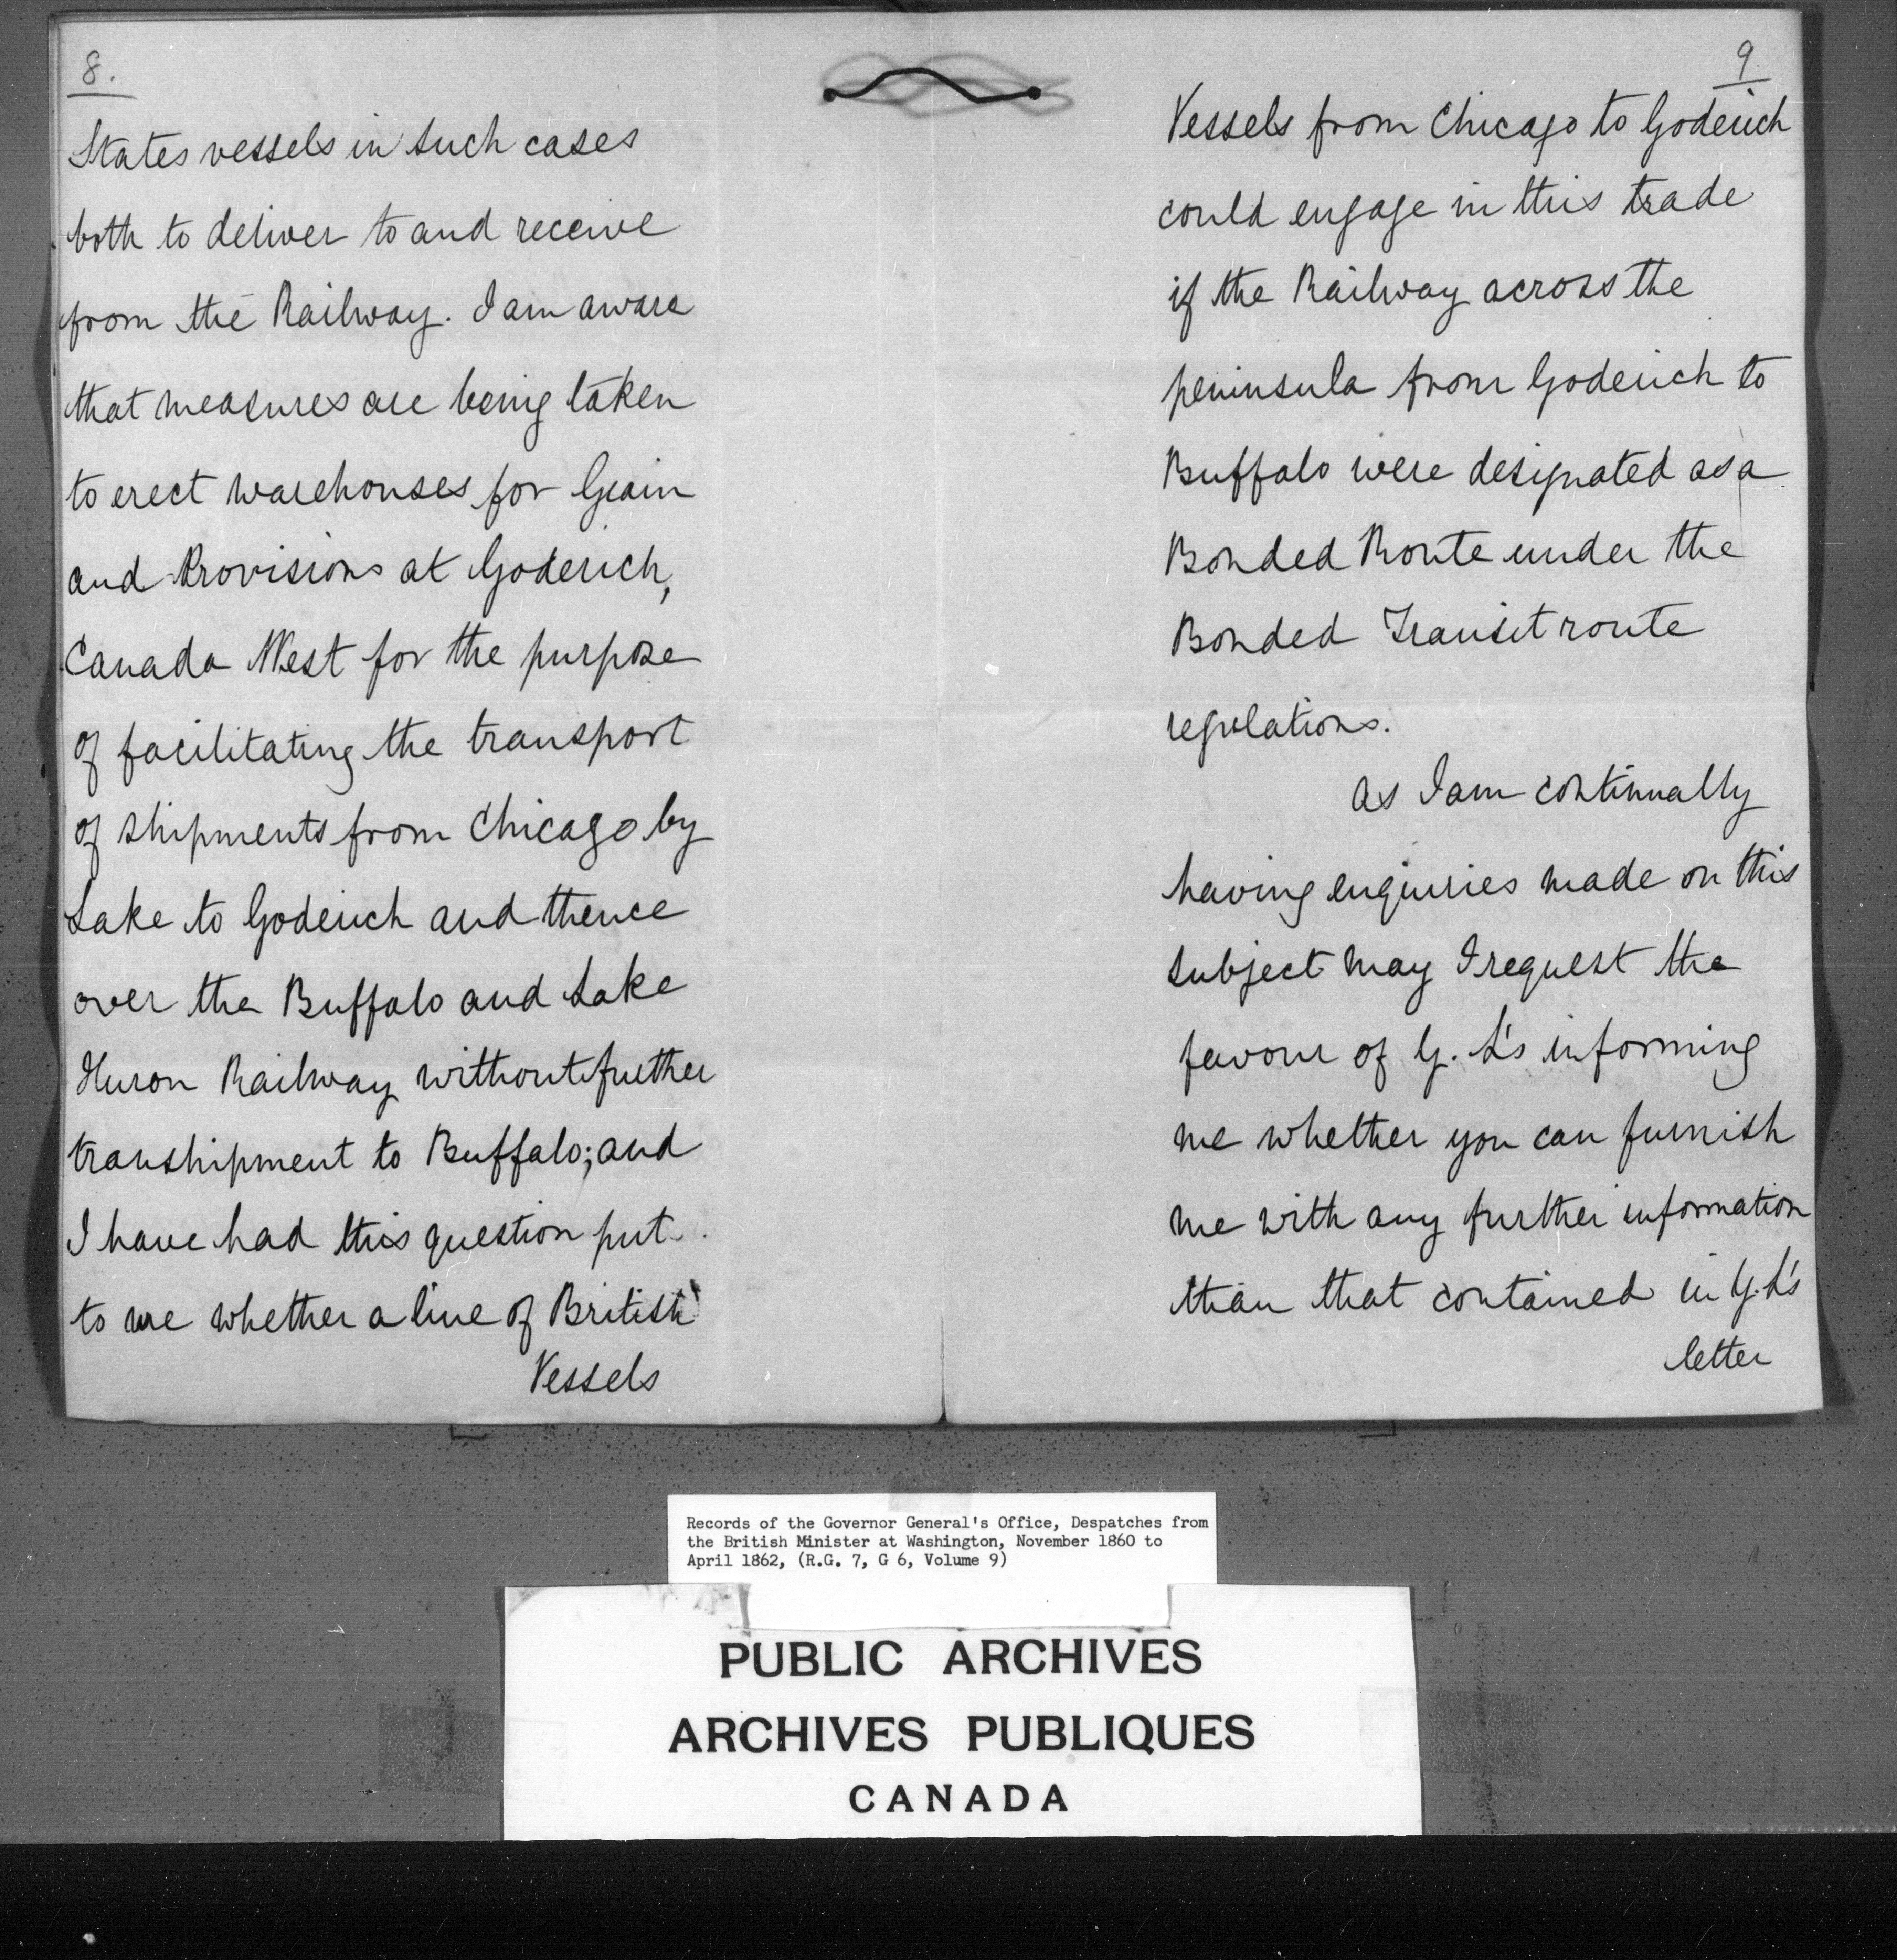 8.
States vessels in such cases
both to deliver to and receive
from the Railway. I am aware
that measures are being taken
to erect warehouses for Grain
and Provisions at Goderich,
Canada West for the purpose
of facilitating the transport
of shipments from Chicago by
Lake to Goderich and thence
over the Buffalo and Lake
Huron Railway without further
transhipment to Buffalo; and
I have had this question put
to me whether a line of British
Vessels
9
Vessels from Chicago to Goderich
could engage in this trade
if the Railway across the
peninsula from Goderich to
Buffalo were designated as a
Bonded Route under the
Bonded Transit route
regulations.
As I am continually
having enquiries made on this
subject may I request the
favour of Y. L's informing
me whether you can furnish
me with any further information
than that contained in Y. L's
letter
Records of the Governor General's Office, Despatches from
the British Minister at Washington, November 1860 to
April 1862, (R.G. 7, G 6, Volume 9)
PUBLIC ARCHIVES
ARCHIVES PUBLIQUES
CANADA